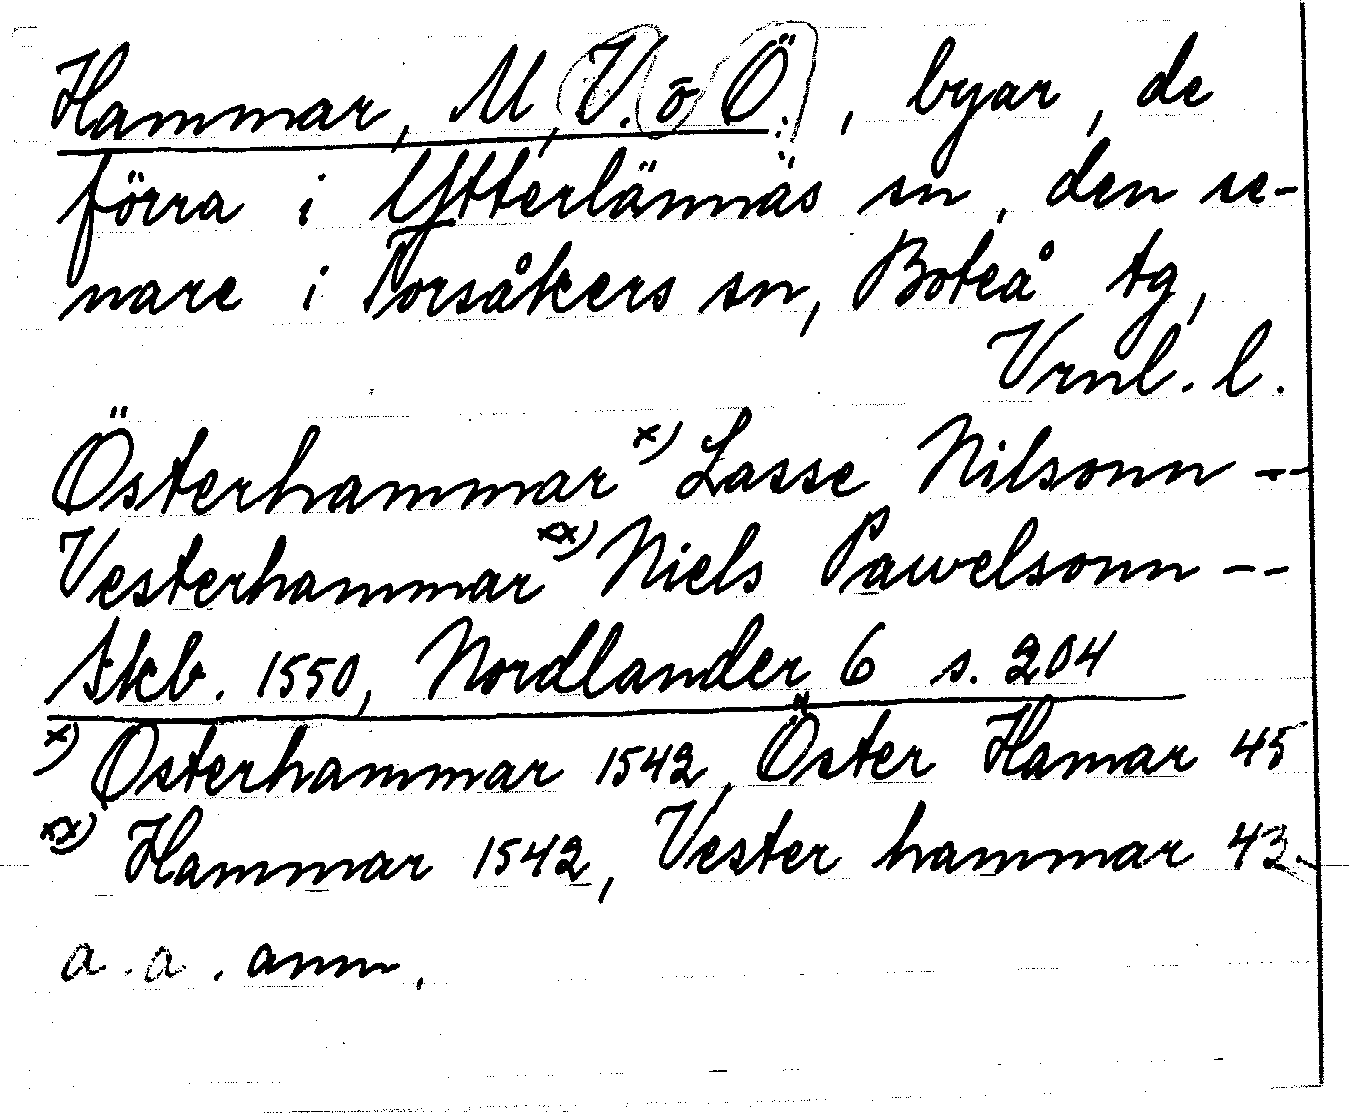 Hammar, M, V. o Ö., byar, de
förra i Ytterlännäs sn, den se-
nare i Torsåkers sn, Boteå tg,
Vrnl. l.
Österhammar x) Lasse Nilsonn --
Vesterhammar xx) Niels Pawelsonn --
Skb. 1550, Nordlander 6 s. 204
x) Østerhammar 1542, Öster Hamar 45
xx) Hammar 1542, Vester hammar 43
a. a. anm.